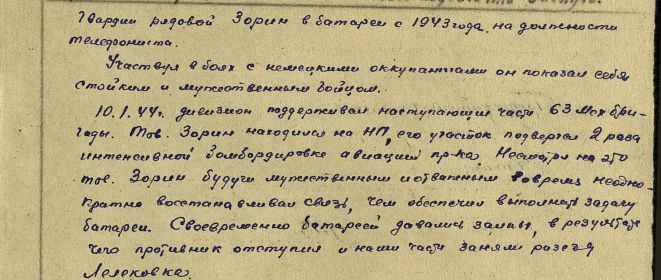 Гвардии рядовой Зорин в батареи с 1943 года, на должности
телефониста.
Участвуя в боях с немецкими оккупантами он показал себя
стойким и мужественным бойцом.
10.1.44г. дивизион поддерживал наступающие части 63 мех бри-
гады. Тов. Зорин находился на НП, его участок подвергся 2 раза
интенсивной бомбардировке авиации пр-ка. Несмотря на это
тов. Зорин будучи мужественным и отважным вовремя неодно-
кратно восстанавливал связь, чем обеспечил выполнить задачу
батареи. Своевременно батареей давались залпы, в результате
чего противник отступил и наши части заняли разезд
Лелековка.